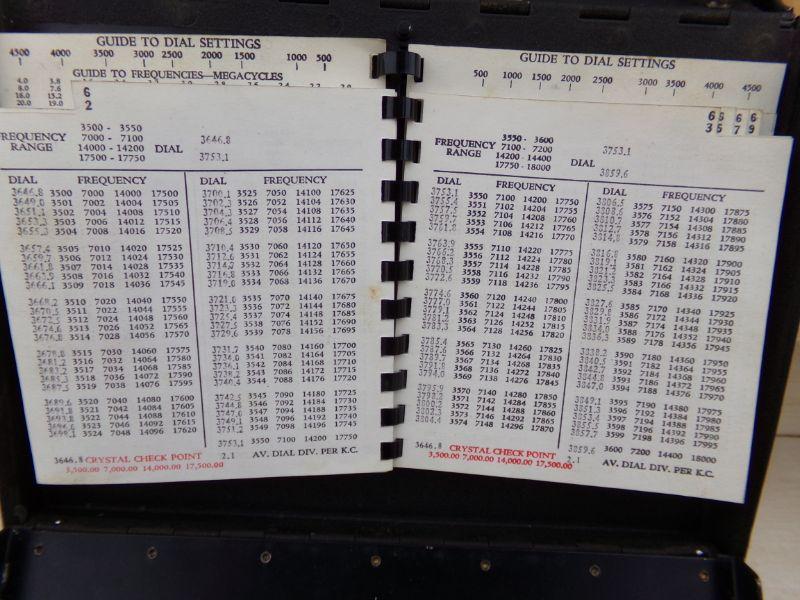 GUIDE TO DIAL SETTINGS
4500 4000 3500 3000 2500 2000 1500 1000 500
GUIDE TO FREQUENCIES—MEGACYCLES
4.0 3.8
8.0 7.6
16.0 15.2
20.0 19.0
6
2
FREQUENCY RANGE
3500 - 3550
7000 - 7100
14000 - 14200
17500 - 17750
DIAL
3646.8
3753.1
DIAL FREQUENCY
3646.8 3500 7000 14000 17500
3649.0 3501 7002 14004 17505
3651.1 3502 7004 14008 17510
3653.3 3503 7006 14012 17515
3655.3 3504 7008 14016 17520
3657.4 3505 7010 14020 17525
3659.7 3506 7012 14024 17530
3661.8 3507 7014 14028 17535
3663.9 3508 7016 14032 17540
3666.1 3509 7018 14036 17545
3668.2 3510 7020 14040 17550
3670.5 3511 7022 14044 17555
3672.5 3512 7024 14048 17560
3674.6 3513 7026 14052 17565
3676.8 3514 7028 14056 17570
3678.8 3515 7030 14060 17575
3681.2 3516 7032 14064 17580
3683.2 3517 7034 14068 17585
3685.3 3518 7036 14072 17590
3687.5 3519 7038 14076 17595
3689.6 3520 7040 14080 17600
3691.8 3521 7042 14084 17605
3693.8 3522 7044 14088 17610
3696.6 3523 7046 14092 17615
3698.1 3524 7048 14096 17620
DIAL FREQUENCY
3700.1 3525 7050 14100 17625
3702.3 3526 7052 14104 17630
3704.3 3527 7054 14108 17635
3706.4 3528 7056 14112 17640
3708.5 3529 7058 14116 17645
3710.4 3530 7060 14120 17650
3712.6 3531 7062 14124 17655
3714.9 3532 7064 14128 17660
3716.8 3533 7066 14132 17665
3719.0 3534 7068 14136 17670
3721.0 3535 7070 14140 17675
3723.3 3536 7072 14144 17680
3725.4 3537 7074 14148 17685
3727.5 3538 7076 14152 17690
3729.6 3539 7078 14156 17695
3731.7 3540 7080 14160 17700
3734.0 3541 7082 14164 17705
3736.1 3542 7084 14168 17710
3738.2 3543 7086 14172 17715
3740.4 3544 7088 14176 17720
3742.5 3545 7090 14180 17725
3744.8 3546 7092 14184 17730
3747.0 3547 7094 14188 17735
3749.1 3548 7096 14192 17740
3751.2 3549 7098 14196 17745
3753.1 3550 7100 14200 17750
3646.8 CRYSTAL CHECK POINT 2.1 AV. DIAL DIV. PER K.C.
3,500.00 7,000.00 14,000.00 17,500.00
GUIDE TO DIAL SETTINGS
500 1000 1500 2000 2500 3000 3500 4000 4500
6 6 6 6
3 5 7 9
FREQUENCY RANGE
3550 - 3600
7100 - 7200
14200 - 14400
17750 - 18000
DIAL
3753.1
3859.6
DIAL FREQUENCY
3753.1 3550 7100 14200 17750
3755.4 3551 7102 14204 17755
3757.5 3552 7104 14208 17760
3553 7106 14212 17765
3761.8 3554 7108 14216 17770
3763.9 3555 7110 14220 17775
3766.2 3556 7112 14224 17780
3768.3 3557 7114 14228 17785
3770.5 3558 7116 14232 17790
3772.6 3559 7118 14236 17795
3774.6 3560 7120 14240 17800
3777.0 3561 7122 14244 17805
3779.1 3562 7124 14248 17810
3781.2 3563 7126 14252 17815
3783.3 3564 7128 14256 17820
3785.4 3565 7130 14260 17825
3787.6 3566 7132 14264 17830
3789.7 3567 7134 14268 17835
3791.8 3568 7136 14272 17840
3794.0 3569 7138 14276 17845
3795.9 3570 7140 14280 17850
3798.2 3571 7142 14284 17855
3800.2 3572 7144 14288 17860
3802.3 3573 7146 14292 17865
3804.4 3574 7148 14296 17870
DIAL FREQUENCY
3806.5 3575 7150 14300 17875
3808.6 3576 7152 14304 17880
3810.7 3577 7154 14308 17885
3812.7 3578 7156 14312 17890
3814.8 3579 7158 14316 17895
3816.8 3580 7160 14320 17900
3819.1 3581 7162 14324 17905
3582 7164 14328 17910
3583 7166 14332 17915
3584 7168 14336 17920
3827.6 3585 7170 14340 17925
3829.8 3586 7172 14344 17930
3587 7174 14348 17935
3834.0 3588 7176 14352 17940
3836.3 3589 7178 14356 17945
3838.2 3590 7180 14360 17950
3840.5 3591 7182 14364 17955
3842.7 3592 7184 14368 17960
3844.8 3593 7186 14372 17965
3847.0 3594 7188 14376 17970
3849.1 3595 7190 14380 17975
3851.3 3596 7192 14384 17980
3853.4 3597 7194 14388 17985
3855.5 3598 7196 14392 17990
3857.7 3599 7198 14396 17995
3859.6 3600 7200 14400 18000
3646.8 CRYSTAL CHECK POINT 2.1 AV. DIAL DIV. PER K.C.
3,500.00 7,000.00 14,000.00 17,500.00